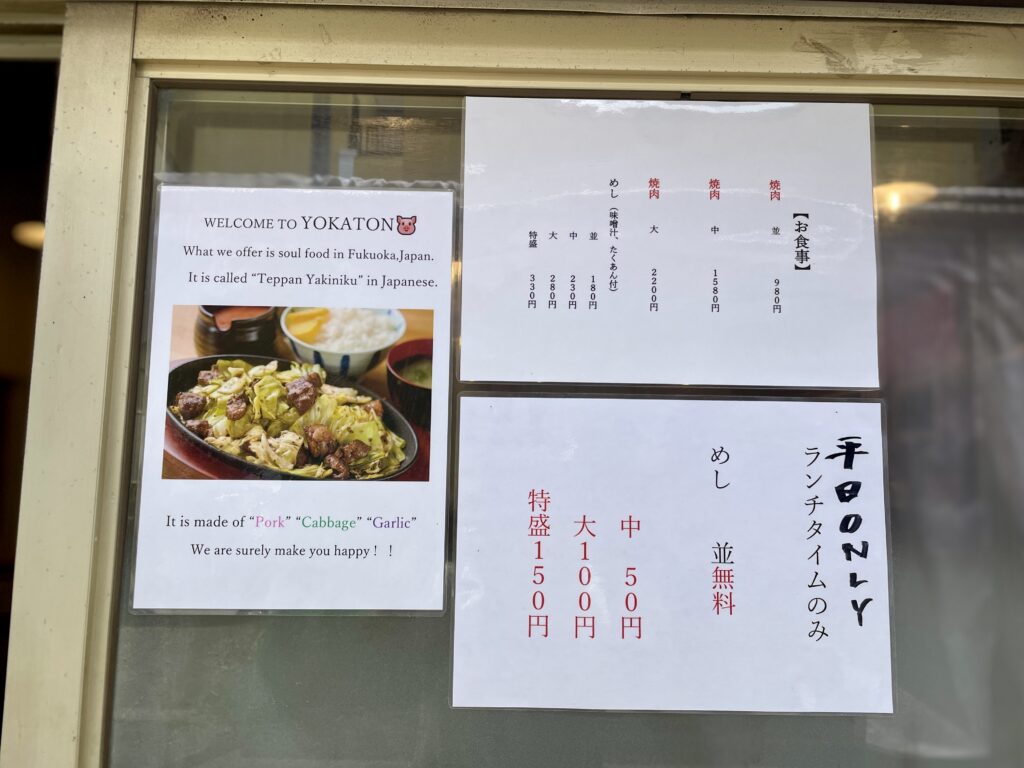 WELCOME TO YOKATON
What we offer is soul food in Fukuoka,Japan.
It is called “Teppan Yakiniku” in Japanese.
It is made of “Pork” “Cabbage” “Garlic”
We are surely make you happy！！
【お食事】
焼肉 並 980円
焼肉 中 1580円
焼肉 大 2200円
めし（味噌汁、たくあん付）
並 180円
中 230円
大 280円
特盛 330円
平日ONLY
ランチタイムのみ
めし 並無料
中 50円
大100円
特盛150円